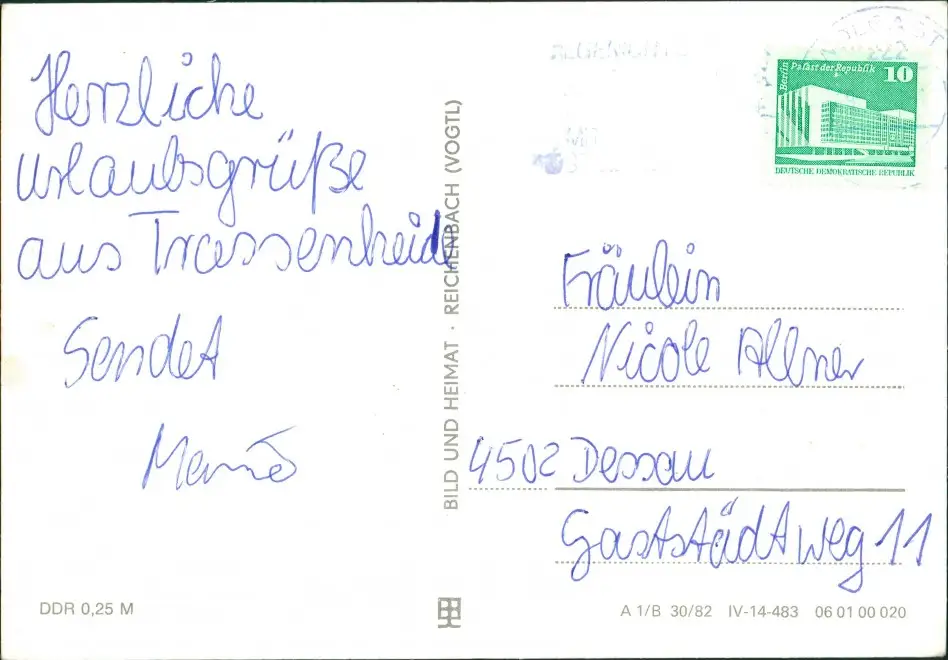 Herzliche
Urlaubsgrüße
aus Trassenheide
Sendet
BILD UND HEIMAT · REICHENBACH (VOGTL)
Berlin
Palast der Republik
10
DEUTSCHE DEMOKRATISCHE REPUBLIK
Fräulein
Nicole Allner
4502 Dessau
Gaststädtweg 11
DDR 0,25 M
A 1/B 30/82 IV-14-483 06 01 00 020